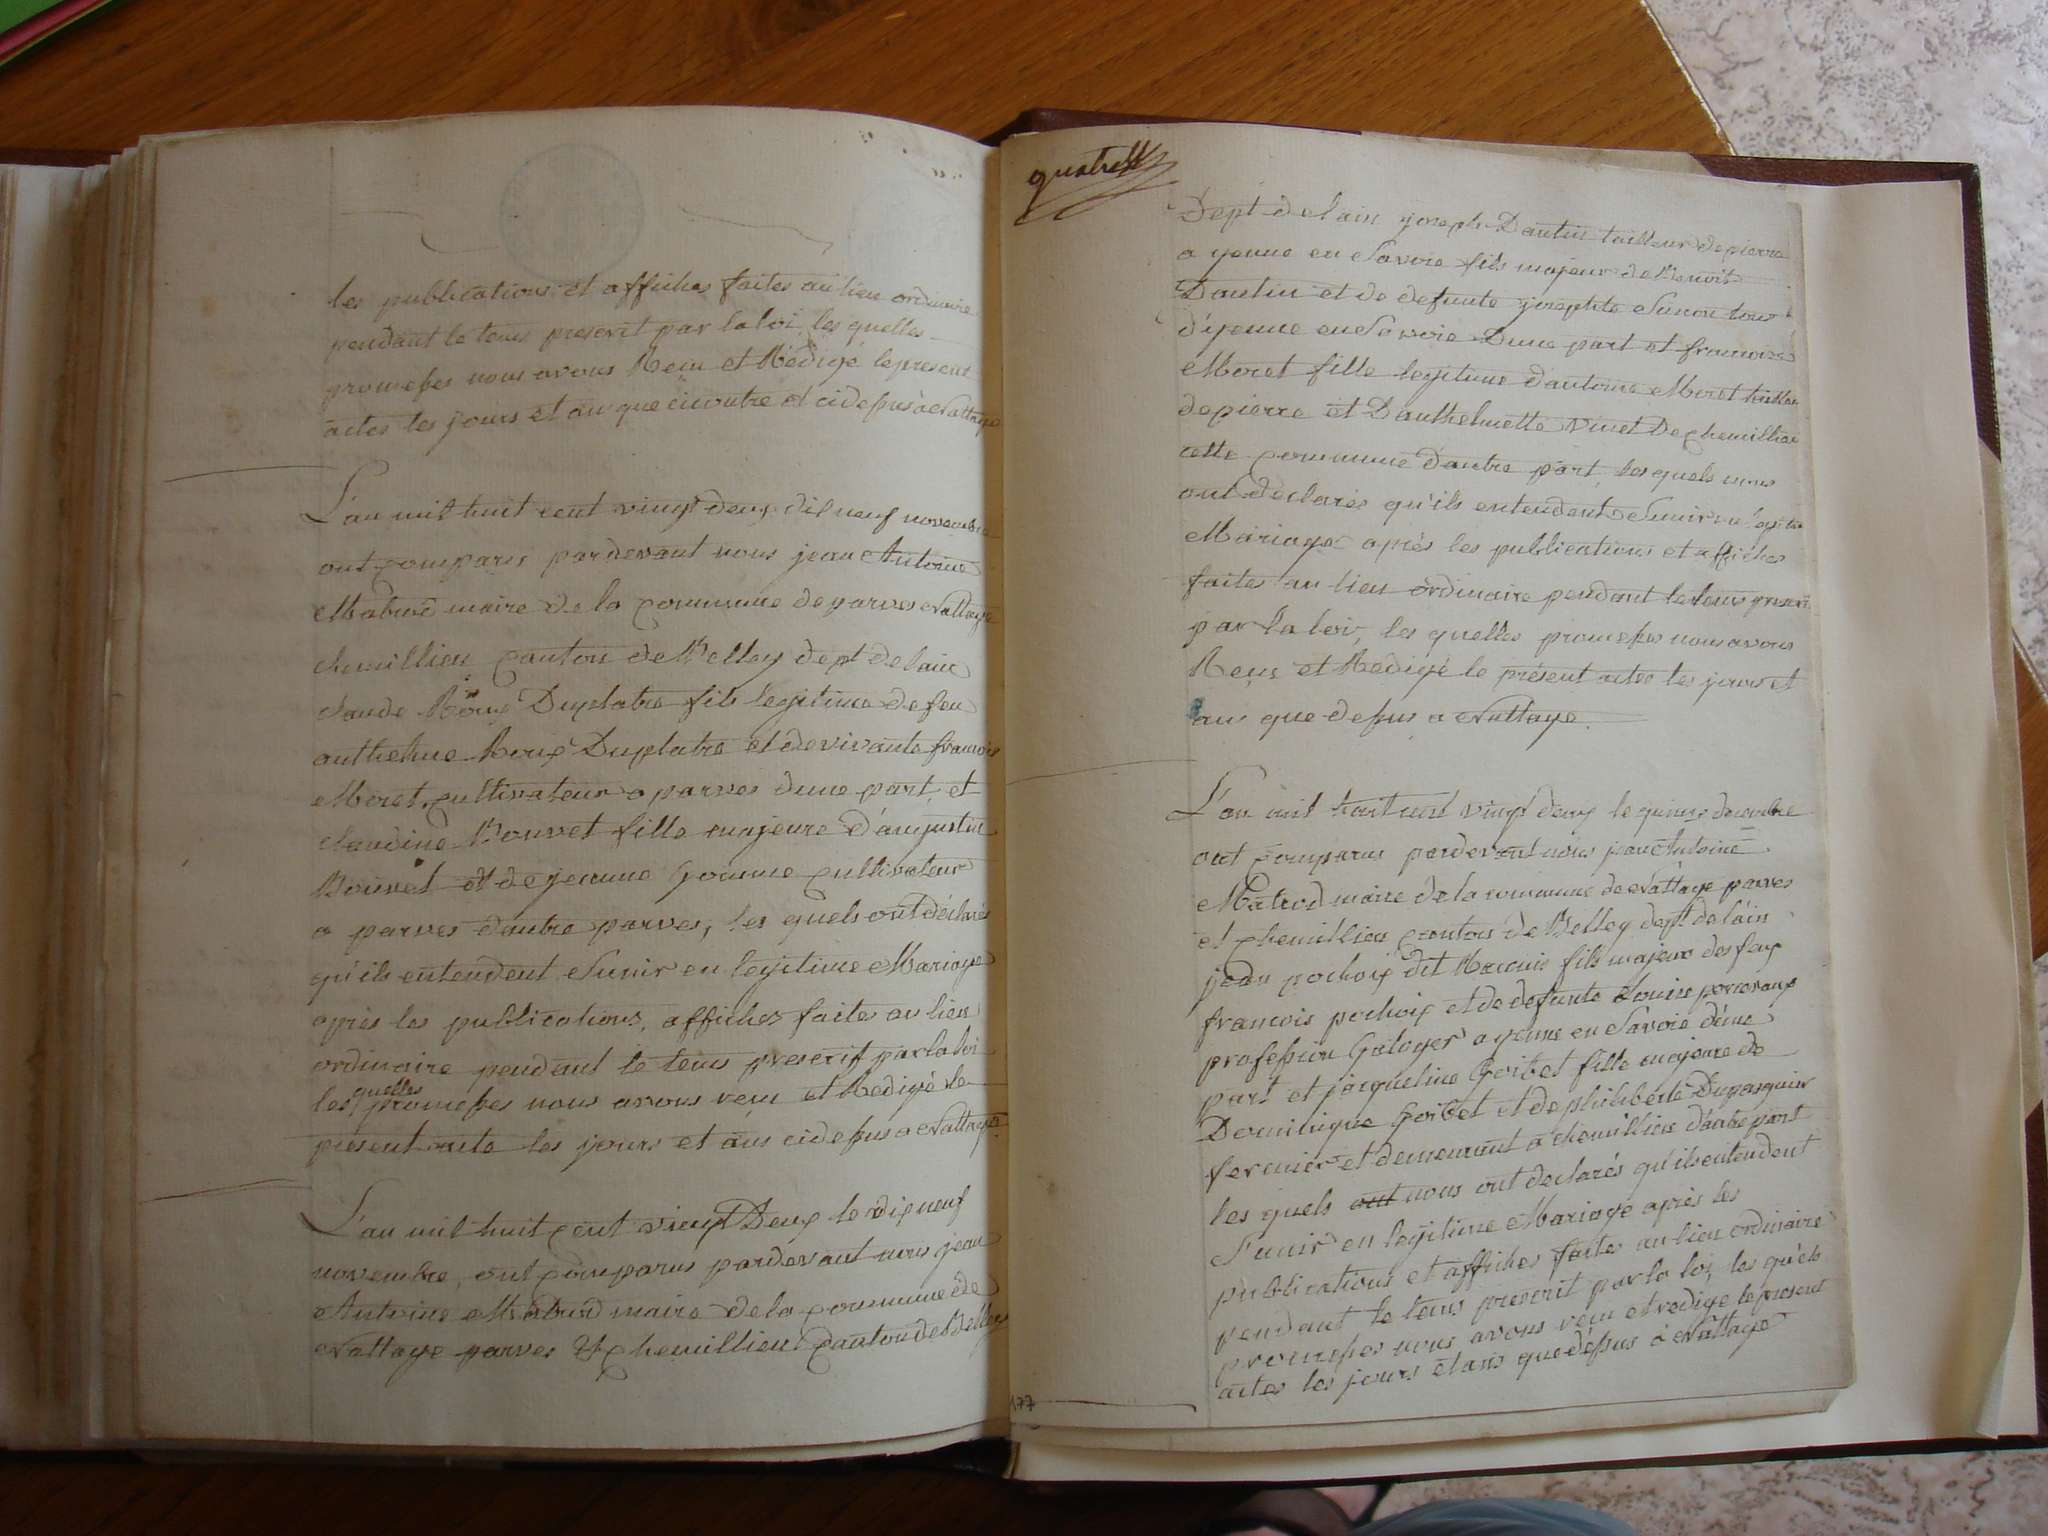 les publications et affiches faites au lieu ordinaire
pendant le tems prescrit par la loi, les quelles
promesses nous avons Recu et Rédigé le present
actes les jours et an que ci contre et cidessus à Nattage
L'an mil huit cent vingt deux dix neuf novembre
ont comparu pardevant nous jean Antoine
Mabrud maire de la commune de parves Nattage
chemillieu canton de Belley dept de lain
claude Roux Duplatre fils legitime de feu
anthelme Roux Duplatre et de vivante francois
Moret cultivateur a parves dune part, et
claudine Bouvet fille majeure d'augustin
Bouvet et de jeanne Goinne cultivateur
a parves dautre parves, les quels ont déclarés
qu'ils entendent sunir en legitime Mariage
après les publications, affiches faites au lieu
ordinaire pendant le tems prescrit par la loi
les quelles promesses nous avons recu et Redigé le
présent acte les jours et ans cidessus a Nattage
L'an mil huit cent vingt Deux le dix neuf
novembre, ont comparus pardevant nous jean
Antoine Mabrud maire de la commune de
Nattage parves & chemillieu canton de Belley
quatre
Dept de lain joseph Dantin tailleur de pierre
a yenne en Savoie fils majeur de Benoit
Dantin et de defunte josephte tous
d'yenne en Savoie Dune part et francoise
Moret fille legitime d'antoine Moret tailleur
de pierre et Danthelmette vinet De chemillieu
cette commune dautre part, les quels nous
ont déclarés qu'ils entendent Sunir en legitime
Mariage après les publications et affiches
faites au lieu ordinaire pendant le tems prescrit
par la loi, les quelles promesses nous avons
Reçu et Redigé le présent actes les jours et
ans que dessus a Nattage.
L'an mil huit cent vingt deux le quinze decembre
ont comparus pardevant nous jean Antoine
Mabrud maire de la commune de Nattage parves
et chemillieu canton de Belley dept de lain
jean pochoix dit fils majeur des feux
francois pochoix et de defunte Louise
profession a yenne en Savoie d'une
part et jacqueline Goibet fille majeure de
Dominique Goibet et de philiberte Dupasquier
fermier et demeurant a chemillieu dautre part
les quels ont nous ont declarés qu'ils entendent
S'unir en legitime Mariage après les
publications et affiches faites au lieu ordinaire
pendant le tems prescrit par la loi, les quels
promesses nous avons recu et redigé le present
actes les jours et ans que dessus à Nattage
177